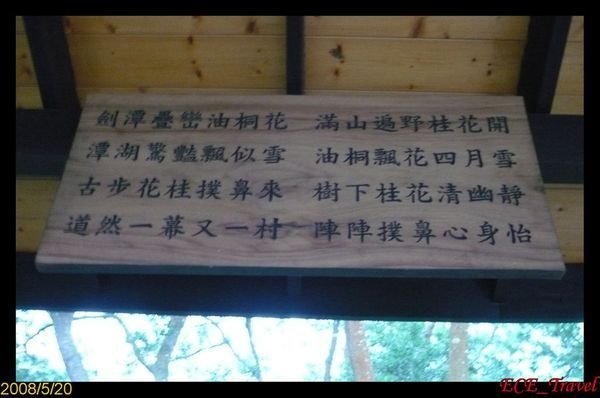 劍潭疊巒油桐花 滿山遍野桂花開
潭湖驚豔飄似雪 油桐飄花四月雪
古步花桂撲鼻來 樹下桂花清幽靜
道然一幕又一村 陣陣撲鼻心身怡
2008/5/20
ECE_Travel